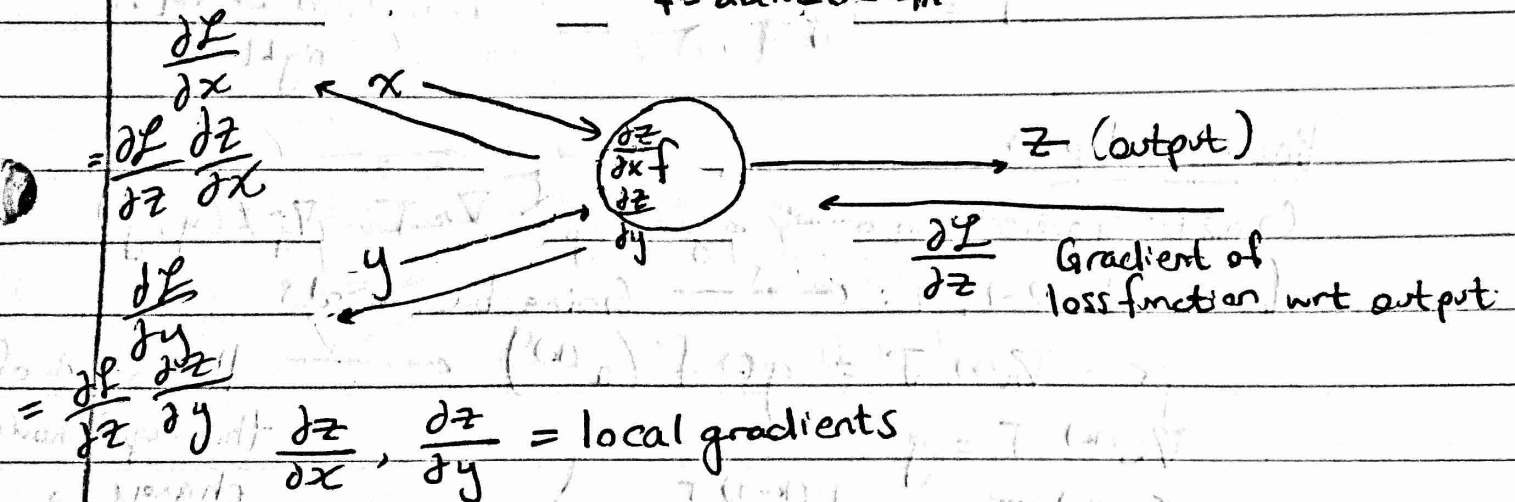 ∂ℒ/∂x
= ∂ℒ/∂z ∂z/∂x
x
y
∂z/∂x f
∂z/∂y
z (output)
∂ℒ/∂z Gradient of
loss function wrt output.
∂ℒ/∂y
= ∂ℒ/∂z ∂z/∂y
∂z/∂x, ∂z/∂y = local gradients